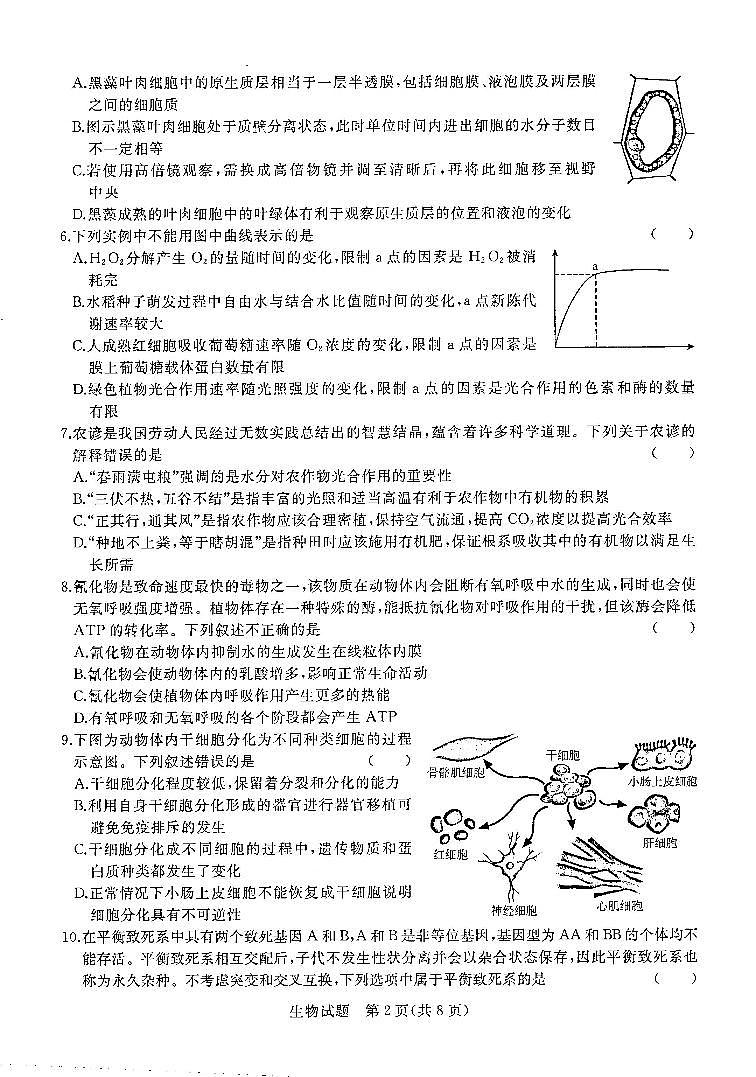 A.黑藻叶肉细胞中的原生质层相当于一层半透膜,包括细胞膜、液泡膜及两层膜
之间的细胞质
B.图示黑藻叶肉细胞处于质壁分离状态,此时单位时间内进出细胞的水分子数目
不一定相等
C.若使用高倍镜观察,需换成高倍物镜并调至清晰后,再将此细胞移至视野
中央
D.黑藻成熟的叶肉细胞中的叶绿体有利于观察原生质层的位置和液泡的变化
6.下列实例中不能用图中曲线表示的是 ( )
A.H₂O₂分解产生O₂的量随时间的变化,限制a点的因素是H₂O₂被消
耗完
B.水稻种子萌发过程中自由水与结合水比值随时间的变化,a点新陈代
谢速率较大
C.人成熟红细胞吸收葡萄糖速率随O₂浓度的变化,限制a点的因素是
膜上葡萄糖载体蛋白数量有限
D.绿色植物光合作用速率随光照强度的变化,限制a点的因素是光合作用的色素和酶的数量
有限
a
7.农谚是我国劳动人民经过无数实践总结出的智慧结晶,蕴含着许多科学道理。下列关于农谚的
解释错误的是 ( )
A.“春雨满屯粮”强调的是水分对农作物光合作用的重要性
B.“三伏不热,五谷不结”是指丰富的光照和适当高温有利于农作物中有机物的积累
C.“正其行,通其风”是指农作物应该合理密植,保持空气流通,提高CO₂浓度以提高光合效率
D.“种地不上粪,等于瞎胡混”是指种田时应该施用有机肥,保证根系吸收其中的有机物以满足生
长所需
8.氰化物是致命速度最快的毒物之一,该物质在动物体内会阻断有氧呼吸中水的生成,同时也会使
无氧呼吸强度增强。植物体存在一种特殊的酶,能抵抗氰化物对呼吸作用的干扰,但该酶会降低
ATP的转化率。下列叙述不正确的是 ( )
A.氰化物在动物体内抑制水的生成发生在线粒体内膜
B.氰化物会使动物体内的乳酸增多,影响正常生命活动
C.氰化物会使植物体内呼吸作用产生更多的热能
D.有氧呼吸和无氧呼吸的各个阶段都会产生ATP
9.下图为动物体内干细胞分化为不同种类细胞的过程
示意图。下列叙述错误的是 ( )
A.干细胞分化程度较低,保留着分裂和分化的能力
B.利用自身干细胞分化形成的器官进行器官移植可
避免免疫排斥的发生
C.干细胞分化成不同细胞的过程中,遗传物质和蛋
白质种类都发生了变化
D.正常情况下小肠上皮细胞不能恢复成干细胞说明
细胞分化具有不可逆性
干细胞
骨骼肌细胞
小肠上皮细胞
红细胞
肝细胞
神经细胞
心肌细胞
10.在平衡致死系中具有两个致死基因A和B,A和B是非等位基因,基因型为AA和BB的个体均不
能存活。平衡致死系相互交配后,子代不发生性状分离并会以杂合状态保存,因此平衡致死系也
称为永久杂种。不考虑突变和交叉互换,下列选项中属于平衡致死系的是 ( )
生物试题 第2页(共8页)